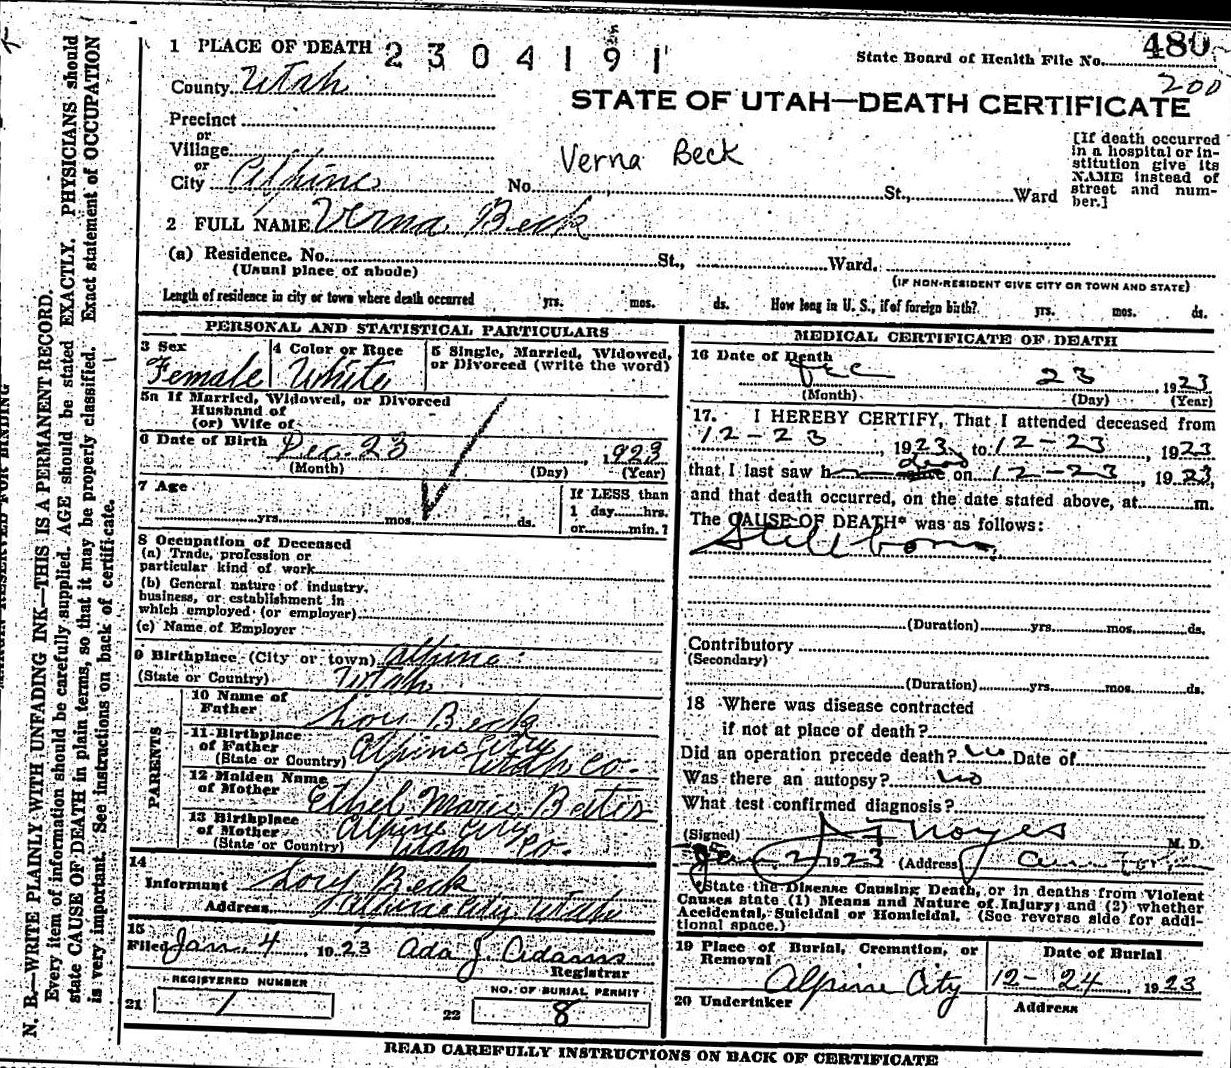 1 PLACE OF DEATH 2304191
State Board of Health File No. 480
200
County Utah
STATE OF UTAH—DEATH CERTIFICATE
Precinct
or
Village
or
City Alpine No. St., Ward
Verna Beck
[If death occurred
in a hospital or in-
stitution give its
NAME instead of
street and num-
ber.]
2 FULL NAME Verna Beck
(a) Residence. No. St., Ward.
(Usual place of abode) (IF NON-RESIDENT GIVE CITY OR TOWN AND STATE)
Length of residence in city or town where death occurred yrs. mos. ds. How long in U. S., if of foreign birth? yrs. mos. ds.
PERSONAL AND STATISTICAL PARTICULARS
3 Sex 4 Color or Race 5 Single, Married, Widowed,
or Divorced (write the word)
Female White
5a If Married, Widowed, or Divorced
Husband of
(or) Wife of
6 Date of Birth Dec. 23, 1923
(Month) (Day) (Year)
7 Age If LESS than
yrs. mos. ds. 1 day hrs.
or min.?
8 Occupation of Deceased
(a) Trade, profession or
particular kind of work
(b) General nature of industry,
business, or establishment in
which employed (or employer)
(c) Name of Employer
9 Birthplace (City or town) Alpine
(State or Country) Utah
PARENTS
10 Name of
Father Beck
11 Birthplace
of Father
(State or Country) Alpine City
Utah Co.
12 Maiden Name
of Mother Ethel Marie
13 Birthplace
of Mother
(State or Country) Alpine City
Utah Co.
14
Informant Beck
Address Alpine City Utah
15
Filed Jan. 4 1923 Ada J. Adams
Registrar
REGISTERED NUMBER NO. OF BURIAL PERMIT
21 1 22 8
MEDICAL CERTIFICATE OF DEATH
16 Date of Death
Dec 23 1923
(Month) (Day) (Year)
17. I HEREBY CERTIFY, That I attended deceased from
12-23, 1923, to 12-23, 1923
that I last saw h dead alive on 12-23, 1923,
and that death occurred, on the date stated above, at m.
The CAUSE OF DEATH* was as follows:
Stillborn
(Duration) yrs. mos. ds.
Contributory
(Secondary)
(Duration) yrs. mos. ds.
18 Where was disease contracted
if not at place of death?
Did an operation precede death? no Date of
Was there an autopsy? no
What test confirmed diagnosis?
(Signed) Noyes M. D.
2 1923 (Address)
*State the Disease Causing Death, or in deaths from Violent
Causes state (1) Means and Nature of Injury; and (2) whether
Accidental, Suicidal or Homicidal. (See reverse side for addi-
tional space.)
19 Place of Burial, Cremation, or
Removal
Alpine City
Date of Burial
12-24, 1923
20 Undertaker Address
READ CAREFULLY INSTRUCTIONS ON BACK OF CERTIFICATE
MARGIN RESERVED FOR BINDING
N. B.—WRITE PLAINLY WITH UNFADING INK—THIS IS A PERMANENT RECORD.
Every item of information should be carefully supplied. AGE should be stated EXACTLY. PHYSICIANS should
state CAUSE OF DEATH in plain terms, so that it may be properly classified. Exact statement of OCCUPATION
is very important. See instructions on back of certificate.